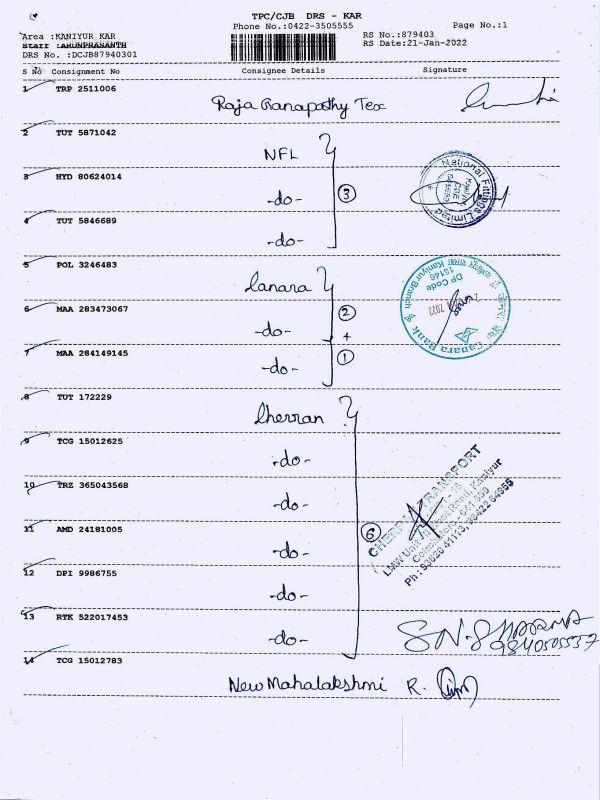 TPC/CJB DRS - KAR
Phone No.:0422-3505555 Page No.:1
Area :KANIYUR KAR RS No.:879403
Staff :ARUNPRASANTH RS Date:21-Jan-2022
DRS No. :DCJB87940301
S No Consignment No Consignee Details Signature
1 TRP 2511006
Raja Ganapathy Tex
2 TUT 5871042
NFL
3 HYD 80624014
-do- 3
National Fittings Limited
4 TUT 5846689
-do-
5 POL 3246483
Canara
DP Code
16146
Kaniyur Branch
Canara Bank
6 MAA 283473067
-do- 2
+
7 MAA 284149145
-do- 1
8 TUT 172229
Cherran
9 TCG 15012625
-do-
10 TRZ 365043568
-do-
11 AMD 24181005
-do- 6
TRANSPORT
LMW Unit
Kaniyur
12 DPI 9986755
-do-
13 RTK 522017453
-do-
S.N. SHARMA
9840505537
14 TCG 15012783
New Mahalakshmi R.